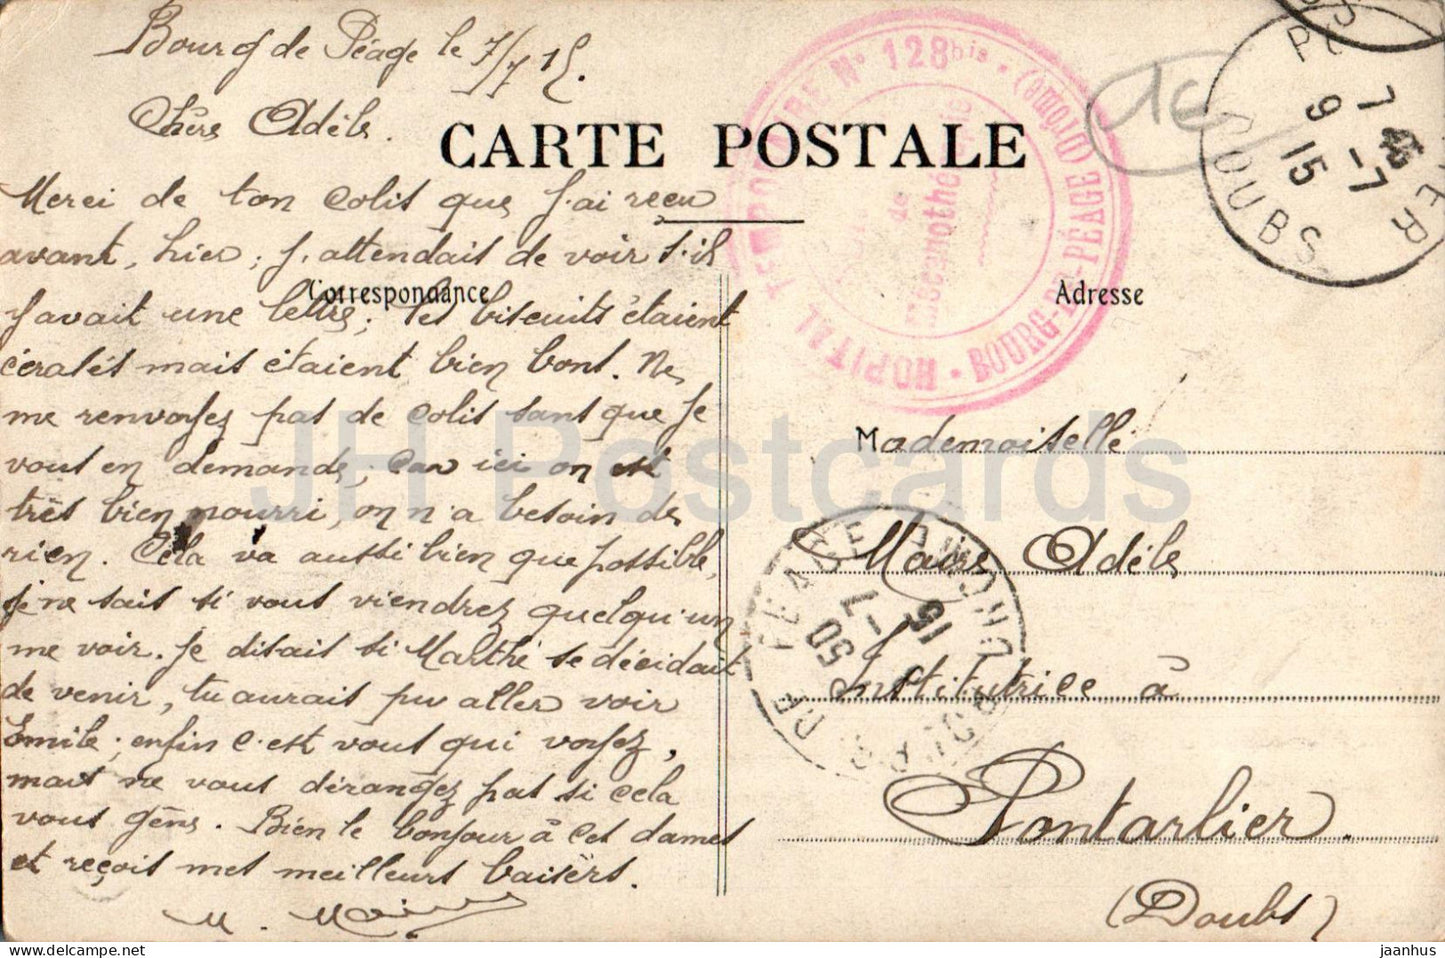 Bourg de Péage le 7/7 15.
Chère Adèle.
CARTE POSTALE
Merci de ton colis que j'ai reçu
avant, hier; j'attendais de voir s'il
Correspondance
y avait une lettre; tes biscuits étaient
écrasés mais étaient bien bons. Ne
me renvoyez pas de colis sans que je
vous en demande, car ici on est
très bien nourri, on n'a besoin de
rien. Cela va aussi bien que possible,
je ne sais si vous viendrez quelqu'un
me voir. Je disais si Marthe se décidait
de venir, tu aurais pu aller voir
Emile; enfin c'est vous qui voyez,
mais ne vous dérangez pas si cela
vous gêne. Bien le bonjour à ces dames
et reçois mes meilleurs baisers.
M. Maire
HOPITAL TEMPORAIRE N° 128 bis
BOURG-DE-PÉAGE (Drôme)
de
Mécanothérapie
7 45
9 -7
15
DOUBS
Adresse
Mademoiselle
Maire Adèle
Institutrice à
Pontarlier.
(Doubs)
BOURG DE PEAGE DROME
15
7 -
50
JH Postcards
jaanhus